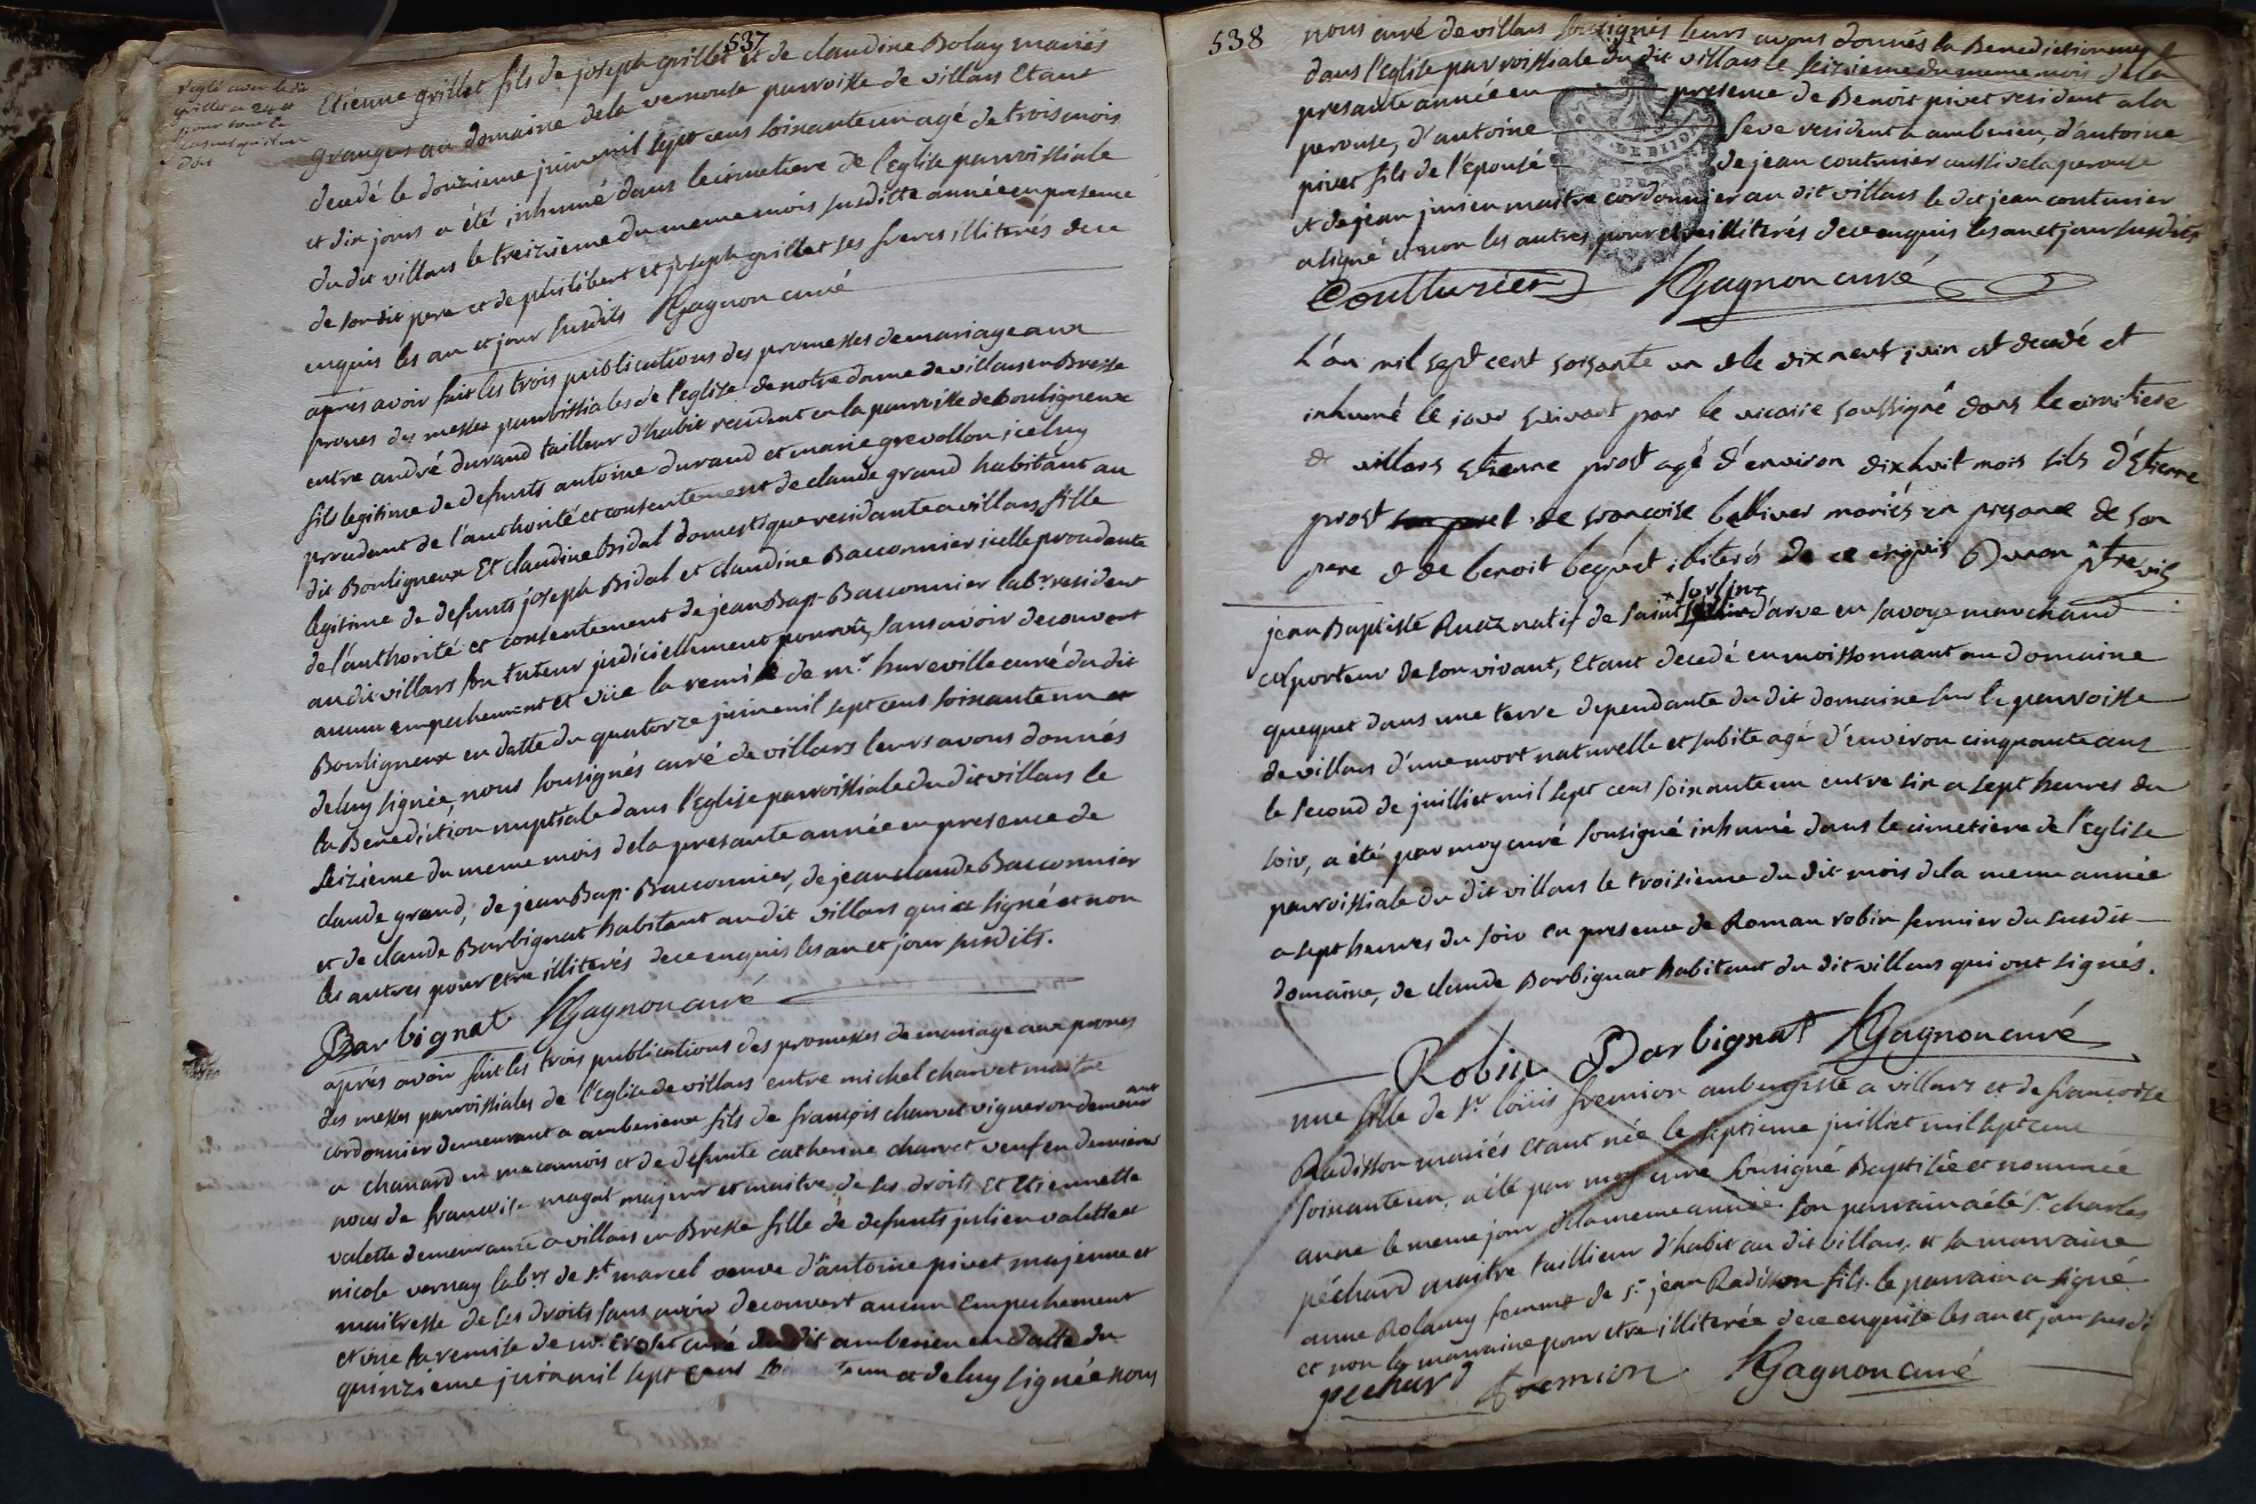 537
Etienne grillet fils de joseph grillet et de claudine Bolay mariés
grangers au domaine dela verouse parroisse de villars Etant
decedé le douzieme juin mil sept cens soixante un agé de trois mois
et dix jours a été inhumé dans le cimetiere de l'eglise parroissiale
du dit villars le treizieme du meme mois susditte année en presence
de son dit pere et de philibert et joseph grillet ses freres illiterés de ce
enquis les an et jour susdits Gagnon curé
aprés avoir fait les trois publications des promesses de mariage aux
prones des messes parroissiales de l'eglise de notre dame de villars en Bresse
entre andré durand tailleur d'habit residant en la parroisse de bouligneux
fils legitime de defunts antoine durand et marie grevollon iceluy
procedant de l'authorité et consentement de claude grand habitant au
dit Bouligneux Et claudine bidal domestique residante a villars fille
legitime de defunts joseph Bidal et claudine Bacconnier icelle procedante
de l'authorité et consentement de jean Bap. Bacconnier lab.r resident
au dit villars son tuteur judiciellement pourvû, sans avoir decouvert
aucun empechement et vüe la remise de m.r hureville curé du dit
Bouligneux en datte du quatorze juin mil sept cens soixante un et
de luy signée, nous sousignés curé de villars leurs avons donnés
la Benediction nuptiale dans l'eglise parroissiale du dit villars le
seizième du meme mois dela presante année en presence de
claude grand, de jean Bap. Bacconnier, de jean claude Bacconnier
et de claude Barbignat habitant au dit villars qui a signé et non
les autres pour etre illiterés de ce enquis les an et jour susdits.
Barbignat Gagnon curé
aprés avoir fait les trois publications des promesses de mariage aux prones
des messes parroissiales de l'eglise de villars entre michel charvet maitre
cordonnier demeurant a amberieux fils de françois charvet vigneron demeurant
a chanard en maconnois et de defunte catherine charvet veuf en dernieres
noces de francoise magat majeur et maitre de ses droits Et Etiennette
valette demeurante a villars en Bresse fille de defunts julien valette et
nicole vernay lab.rs de s.t marcel veuve d'antoine pivet majeure et
maitresse de ses droits sans avoir decouvert aucun Empechement
et vüe la remise de m.r curé du dit amberieu en datte du
quinzieme juin mil sept cens un et de luy signée nous
538
nous curé de villars sousignés leurs avons donnés la Benediction
dans l'eglise parroissiale du dit villars le seizieme du meme mois dela
presante année en presence de Benoit pivet resident a la
perouse, d'antoine seve resident a amberieu, d'antoine
pivet fils de l'epousé de jean couturier aussi de la perouse
et de jean maitre cordonnier au dit villars le dit jean couturier
a signé et non les autres pour etre illiterés de ce enquis les an et jour susdits
Coutturier Gagnon curé
L'an mil sept cent soisante un et le dix neuf juin est decedé et
inhumé le jour suivant par le vicaire soussigné dans le cimitiere
de villars Etienne prost agé d'environ dix huit mois fils d'Etienne
prost et de francoise balliver mariés en presance de son
pere et de benoit bequet ilitérés de ce enquis
+ sorlin
jean Baptiste Ruaz natif de saint d'arve en savoye marchand
colporteur de son vivant, Etant decedé en moissonnant au domaine
quequet dans une terre dependante du dit domaine sur la parroisse
de villars d'une mort naturelle et subite agé d'environ cinquante ans
le second de juilliet mil sept cens soixante un entre six a sept heures du
soir, a été par moy curé sousigné inhumé dans le cimetiere de l'eglise
parroissiale du dit villars le troisième du dit mois dela meme année
a sept heures du soir en presence de Roman robin fermier du susdit
domaine, de claude Barbignat habitant du dit villars qui ont signés.
Robin Barbignat Gagnon curé
une fille de s.r loüis fremion aubergiste a villars et de francoise
Radisson mariés etant née le septieme juilliet mil sept cens
soixante un, a été par moy curé sousigné Baptisée et nommée
anne le meme jour dela meme année. son parrain a été s.r charles
péchard maitre taillieur d'habit au dit villars, et sa marraine
anne Rolamy femme de s.r jean Radisson fils. le parrain a signé
et non la marraine pour etre illiterée de ce enquise les an et jour susdi
pechard fremion Gagnon curé